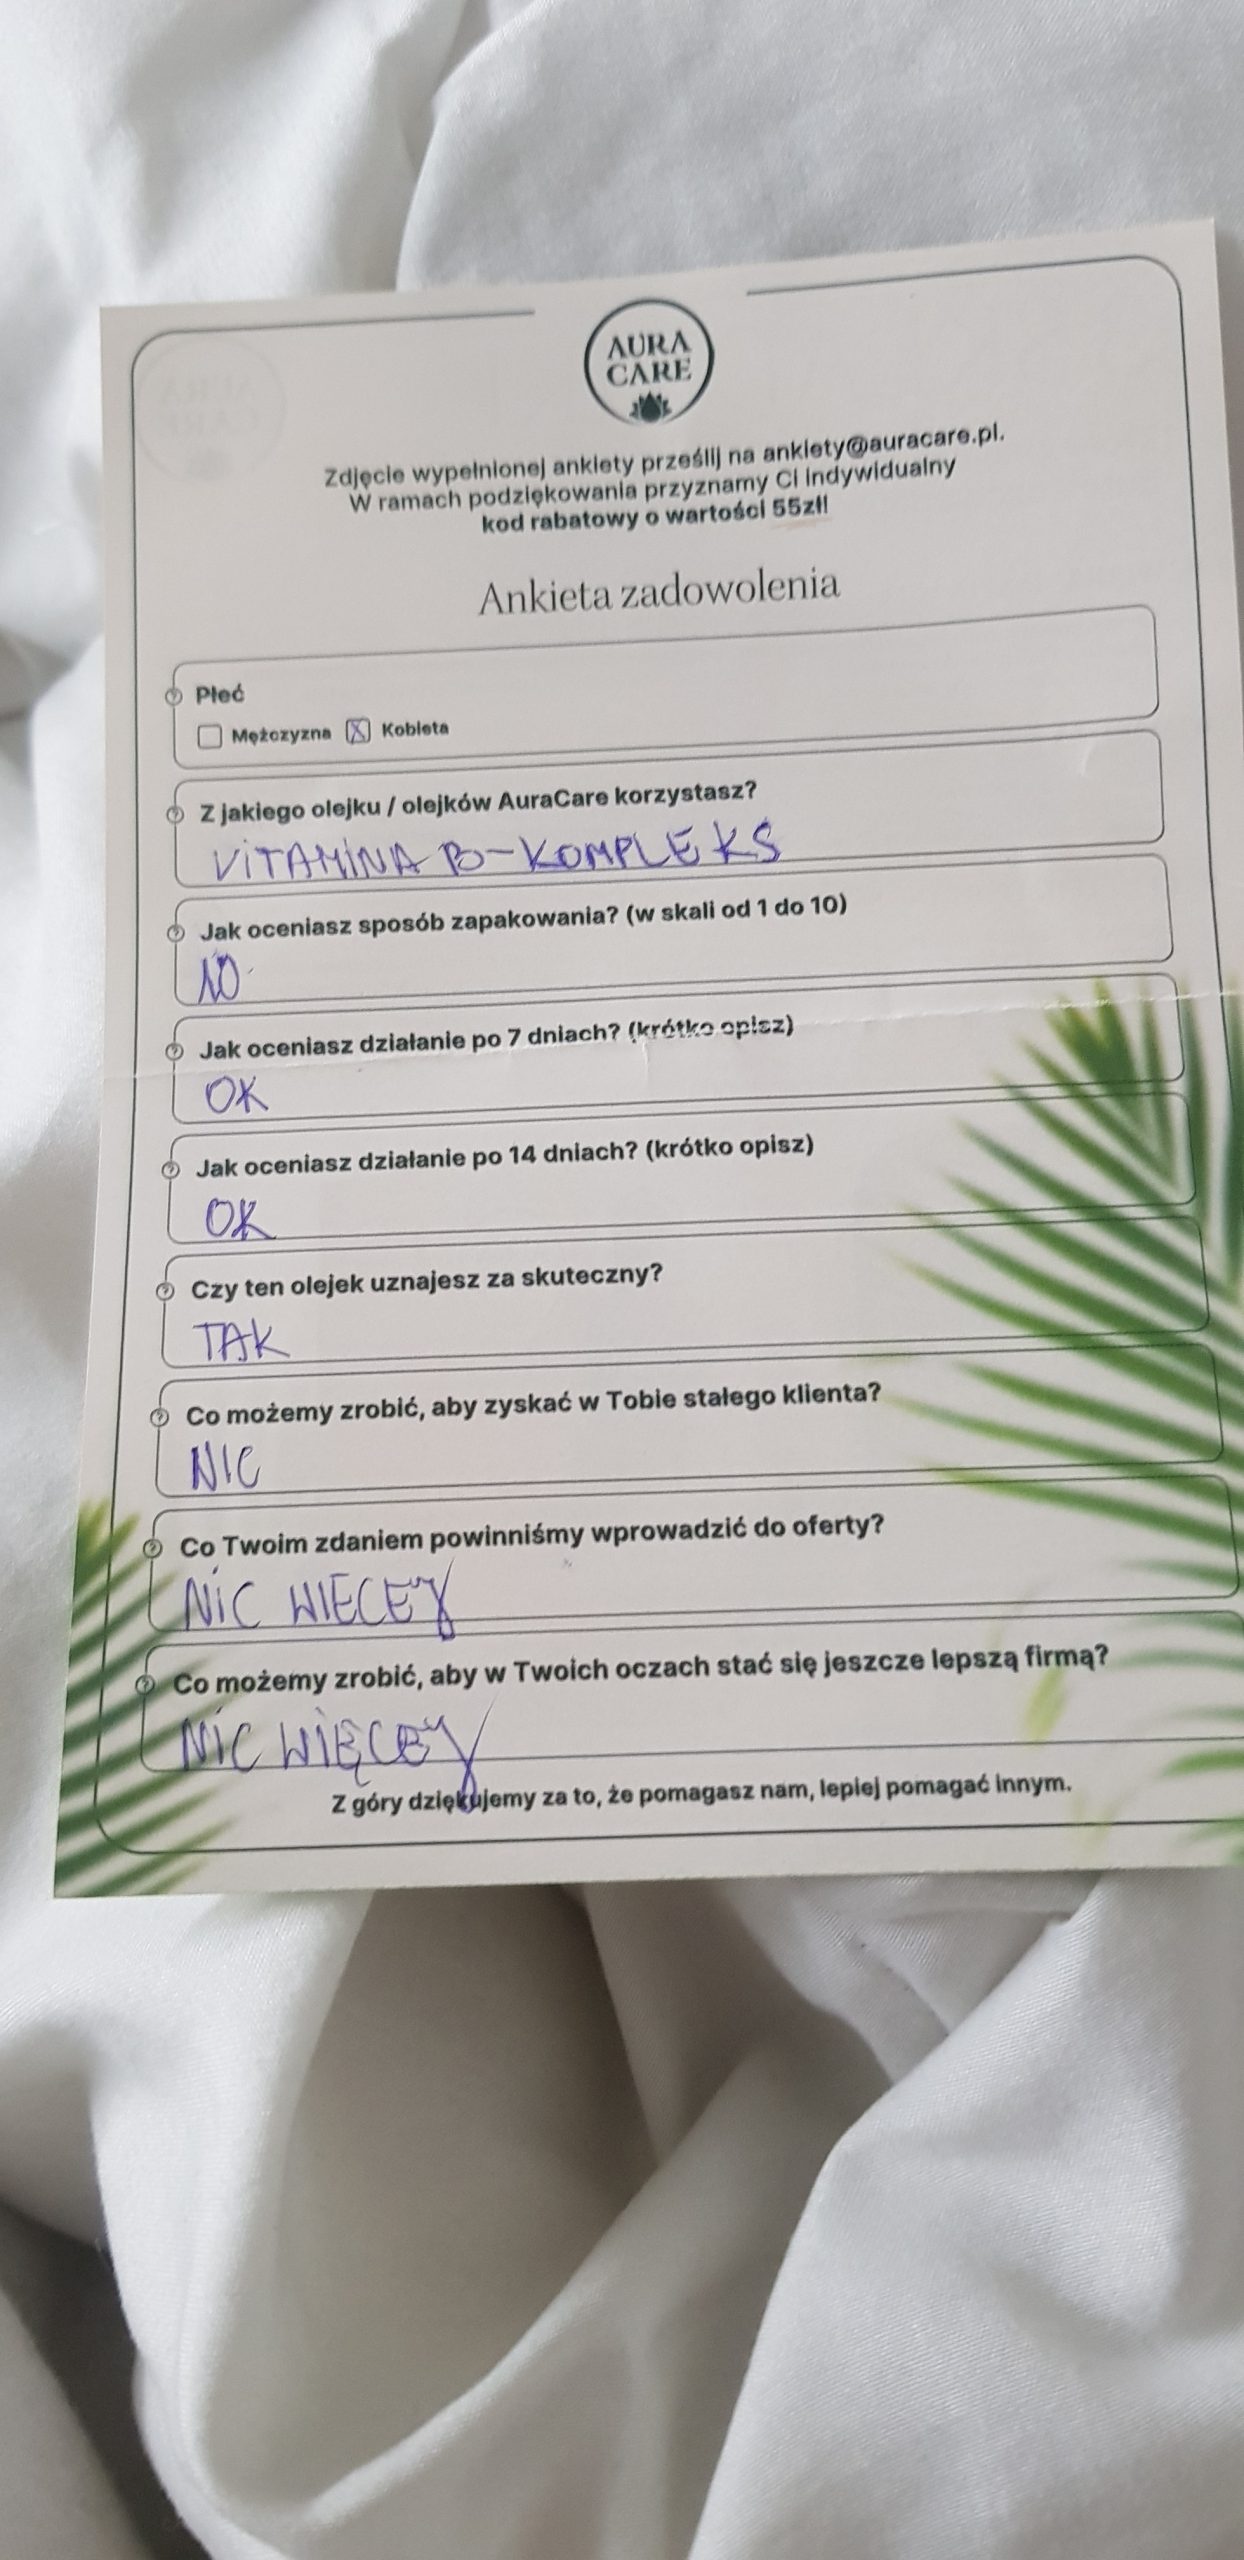 AURA
CARE
Zdjęcie wypełnionej ankiety prześlij na ankiety@auracare.pl.
W ramach podziękowania przyznamy Ci indywidualny
kod rabatowy o wartości 55zł!
Ankieta zadowolenia
Płeć
Mężczyzna X Kobieta
Z jakiego olejku / olejków AuraCare korzystasz?
VITAMINA B-KOMPLEKS
Jak oceniasz sposób zapakowania? (w skali od 1 do 10)
10
Jak oceniasz działanie po 7 dniach? (krótko opisz)
OK
Jak oceniasz działanie po 14 dniach? (krótko opisz)
OK
Czy ten olejek uznajesz za skuteczny?
TAK
Co możemy zrobić, aby zyskać w Tobie stałego klienta?
NIC
Co Twoim zdaniem powinniśmy wprowadzić do oferty?
NIC WIECEJ
Co możemy zrobić, aby w Twoich oczach stać się jeszcze lepszą firmą?
NIC WIĘCEJ
Z góry dziękujemy za to, że pomagasz nam, lepiej pomagać innym.